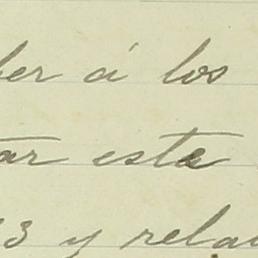 ber á los
ar este
3 y rela